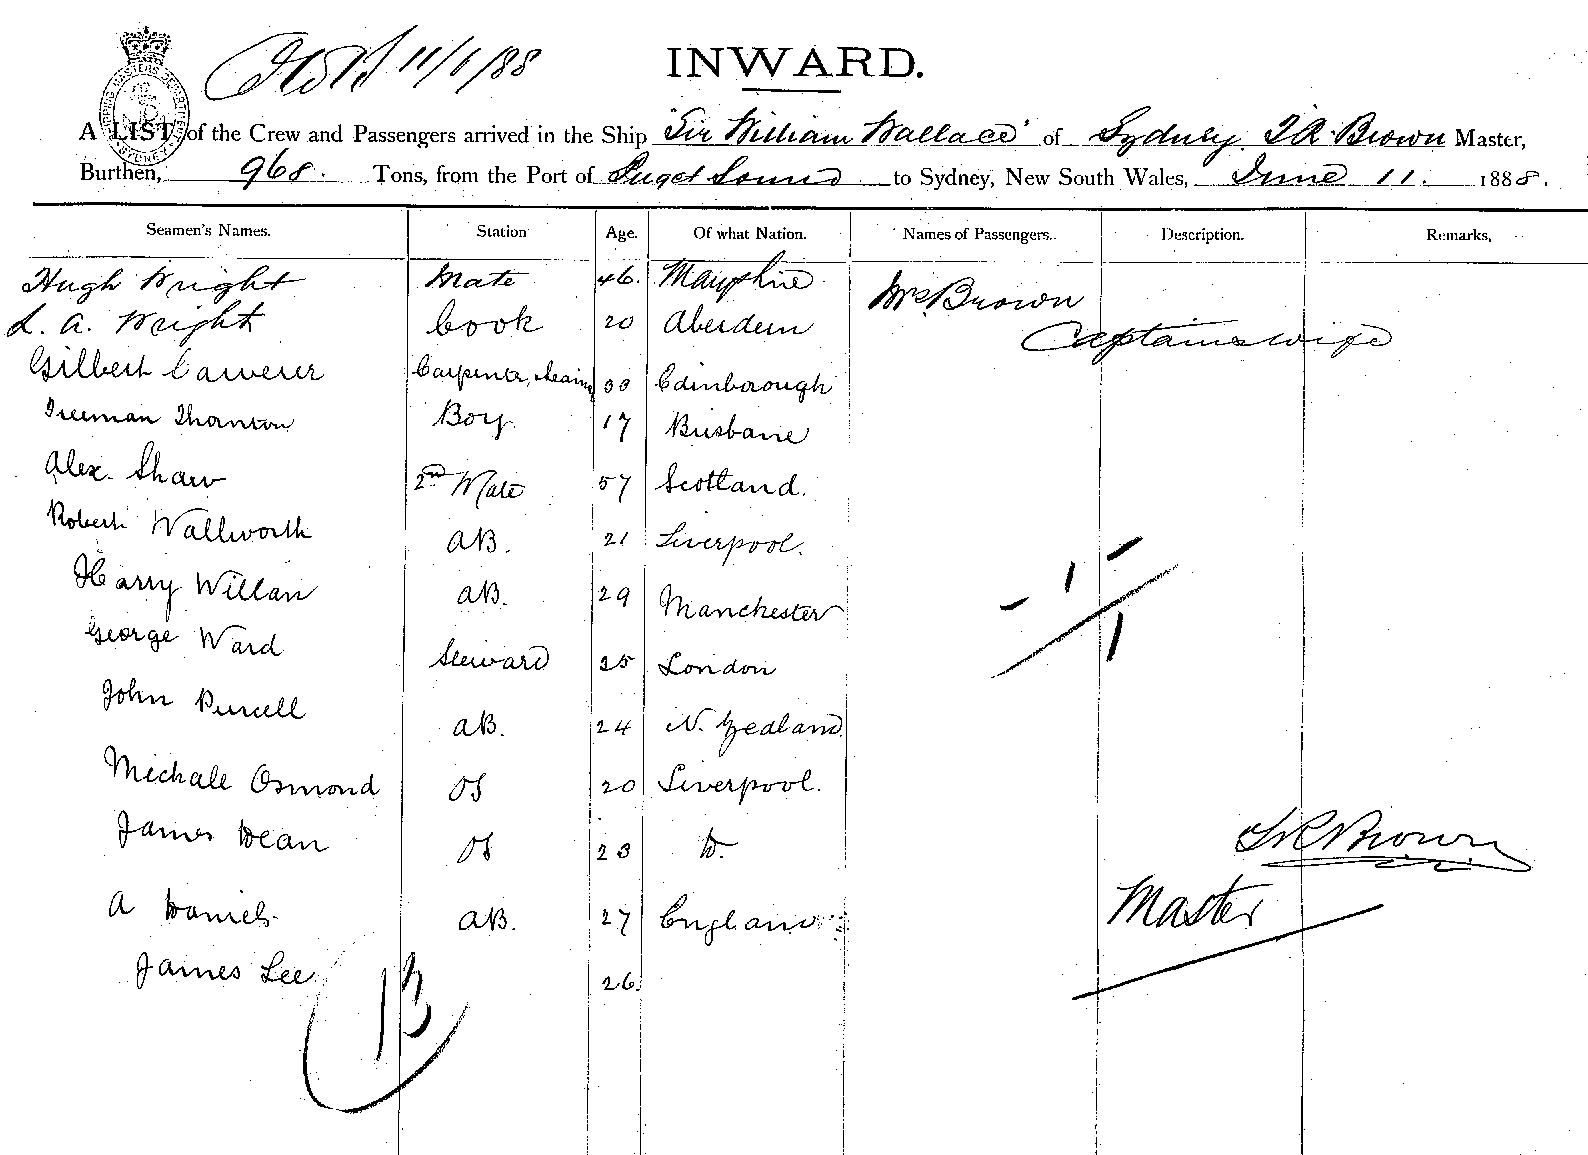 11/6/88
INWARD.
A LIST of the Crew and Passengers arrived in the Ship 'Sir William Wallace' of Sydney. Brown Master,
Burthen, 968. Tons, from the Port of Puget Sound to Sydney, New South Wales, June 11. 1888.
Seamen's Names. Station Age. Of what Nation. Names of Passengers. Description. Remarks,
Hugh Wright Mate 46. Mrs Brown
L. A. Wright Cook 20 Aberdeen Captains wife
Gilbert Carpenter, 33 Edinborough
Freeman Thornton Boy. 17 Brisbane
Alex. Shaw 2nd Mate 57 Scotland.
Robert Wallworth AB. 21 Liverpool.
Harry Willan AB. 29 Manchester
George Ward Steward 25 London
John Purcell AB. 24 N. Zealand
Michale Osmond OS 20 Liverpool.
James Dean OS 23 Do.
Brown
A Daniels AB. 27 England
Master
James Lee 26.
13